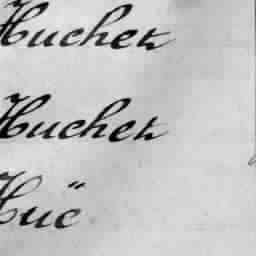 Huchet
Huchet
Huë